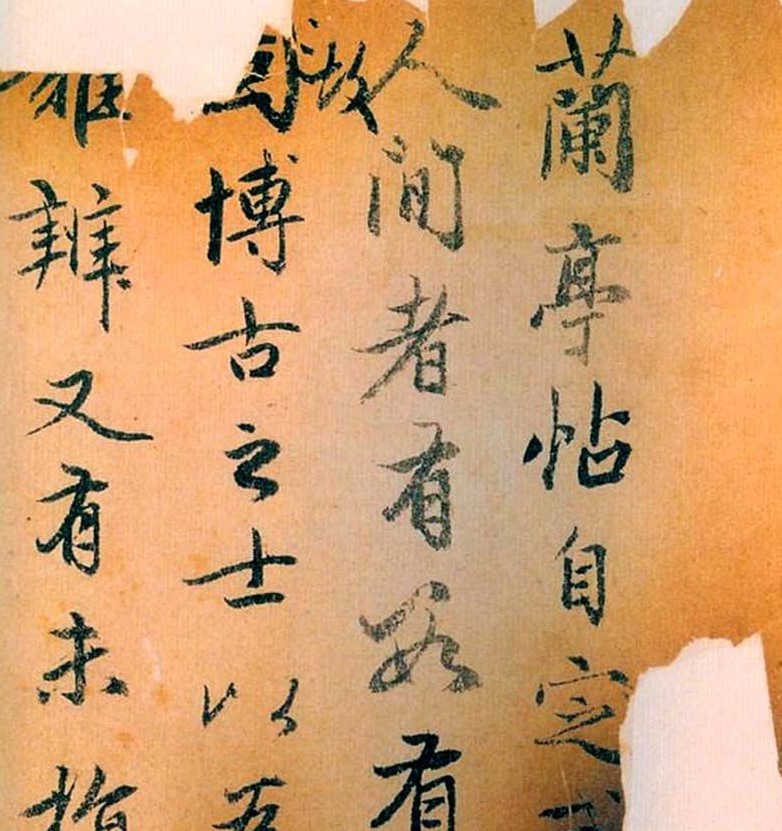 蘭亭帖自定
人間者有數有
故博古之士以
難辨又有未